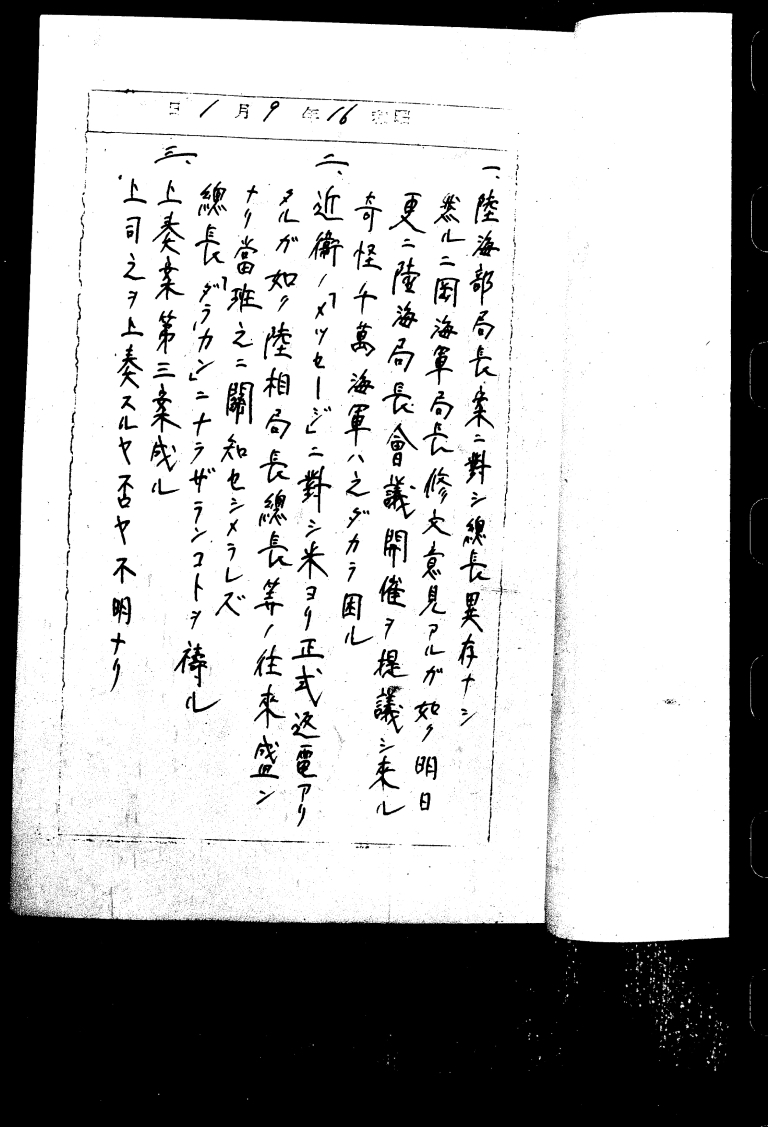 昭和16年9月1日
一、陸海部局長案ニ對シ總長異存ナシ
然ルニ岡海軍局長修文意見アルガ如ク明日
更ニ陸海局長會議開催ヲ提議シ來ル
奇怪千萬海軍ハ之ダカラ困ル
二、近衛ノ「メッセージ」ニ對シ米ヨリ正式返電アリ
タルガ如ク陸相局長總長等ノ往來盛ン
ナリ當班之ニ關知セシメラレズ
總長「ダラカン」ニナラザランコトヲ禱ル
三、上奏案第三案成ル
上司之ヲ上奏スルヤ否ヤ不明ナリ